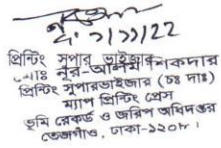 ২১/১১/২২
প্রিন্টিং সুপার ভাইজার
মোঃ নূর-আলম শিকদার
প্রিন্টিং সুপারভাইজার (চঃ দাঃ)
ম্যাপ প্রিন্টিং প্রেস
ভূমি রেকর্ড ও জরিপ অধিদপ্তর
তেজগাঁও, ঢাকা-১২০৮।